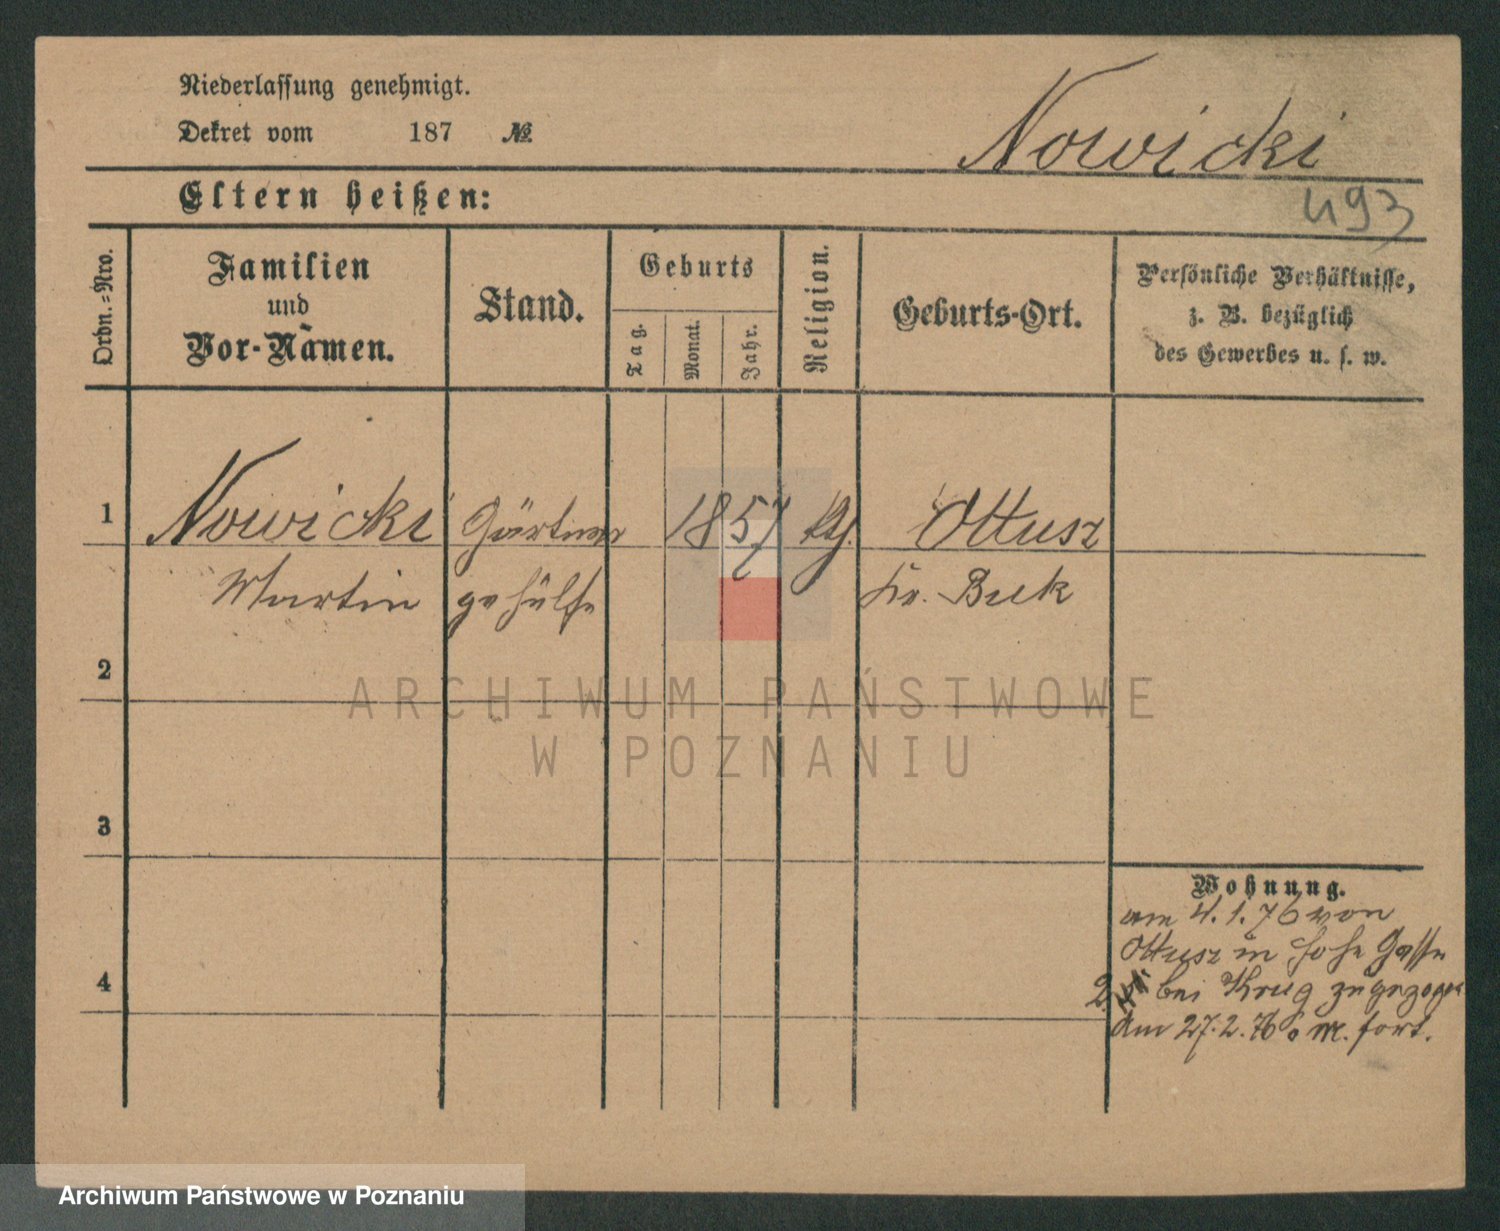 Niederlassung genehmigt.
Dekret vom 187 №
Nowicki
Eltern heißen:
493
Ordn.=Nro.
Familien
und
Vor-Namen.
Stand.
Geburts
Tag.
Monat.
Jahr.
Religion.
Geburts-Ort.
Persönliche Verhältnisse,
z. B. bezüglich
des Gewerbes u. s. w.
1 Nowicki Gärtner 1857 Ottusz
Martin gehülfe Kr. Buk
2
ARCHIWUM PAŃSTWOWE
W POZNANIU
3
Wohnung.
am 4.1.76 von
Ottusz in hohe Gasse
bei Krug zugezogen
4
Am 27.2.76 o. M. fort.
Archiwum Państwowe w Poznaniu